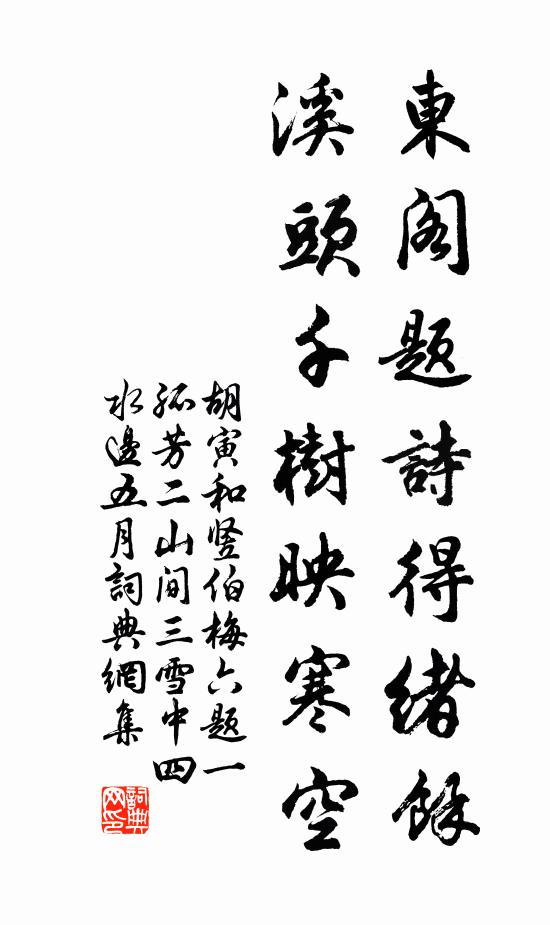 東閣題詩得緒餘
溪頭千樹映寒空
胡寅和竖伯梅六题一
孤芳二山间三雪中四
水邊五月詞典網集
詞典网印